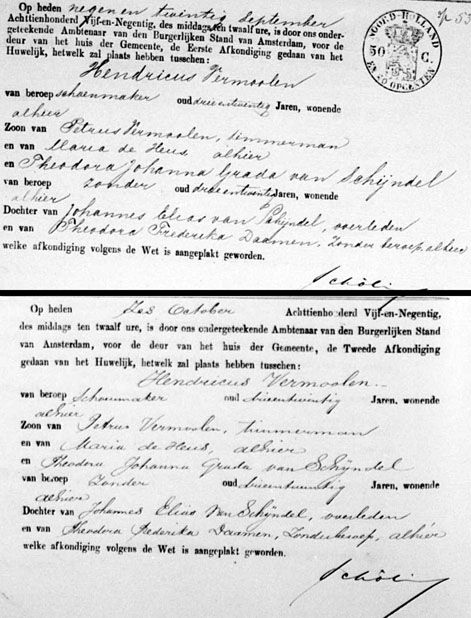 Op heden negen en twintig September
Achttienhonderd Vijf-en-Negentig, des middags ten twaalf ure, is door ons onder-
geteekende Ambtenaar van den Burgerlijken Stand van Amsterdam, voor de
deur van het huis der Gemeente, de Eerste Afkondiging gedaan van het
Huwelijk, hetwelk zal plaats hebben tusschen:
Hendricus Vermoolen
van beroep schoenmaker oud drieentwintig Jaren, wonende
alhier
Zoon van Petrus Vermoolen, timmerman
en van Maria de Heus alhier
en Theodora Johanna Grada van Schijndel
van beroep zonder oud drieentwintig Jaren, wonende
alhier
Dochter van Johannes Elias van Schijndel, overleden
en van Theodora Frederika Daamen, zonder beroep, alhier
welke afkondiging volgens de Wet is aangeplakt geworden.
NOORD-HOLLAND
50 C.
EN 40 OPCENTEN
Op heden Zes October Achttienhonderd Vijf-en-Negentig,
des middags ten twaalf ure, is door ons ondergeteekende Ambtenaar van den Burgerlijken Stand
van Amsterdam, voor de deur van het huis der Gemeente, de Tweede Afkondiging
gedaan van het Huwelijk, hetwelk zal plaats hebben tusschen:
Hendricus Vermoolen
van beroep Schoenmaker oud drieentwintig Jaren, wonende
alhier
Zoon van Petrus Vermoolen, timmerman
en van Maria de Heus, alhier
en Theodora Johanna Grada van Schijndel
van beroep Zonder oud drieentwintig Jaren, wonende
alhier
Dochter van Johannes Elias van Schijndel, overleden
en van Theodora Frederika Daamen, Zonder beroep, alhier
welke afkondiging volgens de Wet is aangeplakt geworden.